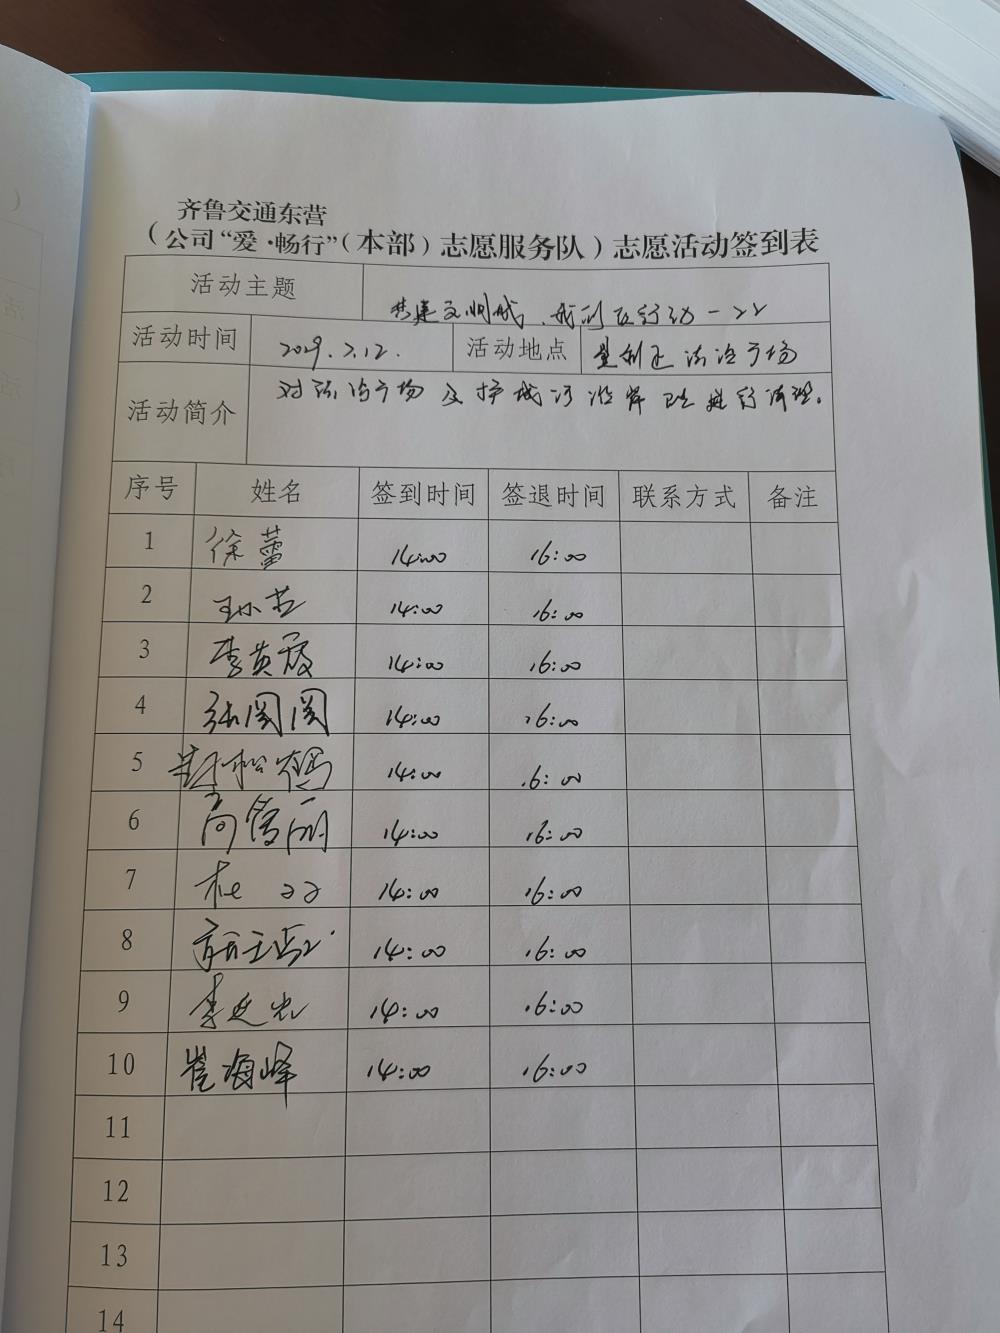 齐鲁交通东营
（公司“爱·畅行”（本部）志愿服务队）志愿活动签到表
活动主题 共建文明城、我们在行动
活动时间 2019.7.12. 活动地点 垦利区法治广场
活动简介 对法治广场及护城河沿岸卫生进行清理。
序号 姓名 签到时间 签退时间 联系方式 备注
1 徐蕾 14:00 16:00
2 14:00 16:00
3 李英霞 14:00 16:00
4 张图图 14:00 16:00
5 松鹤 14:00 16:00
6 高雪丽 14:00 16:00
7 14:00 16:00
8 14:00 16:00
9 李延 14:00 16:00
10 崔海峰 14:00 16:00
11
12
13
14